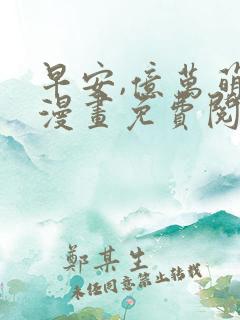 早安,億萬萌
漫畫免費閱
鄭某生
未經同意禁止轉載